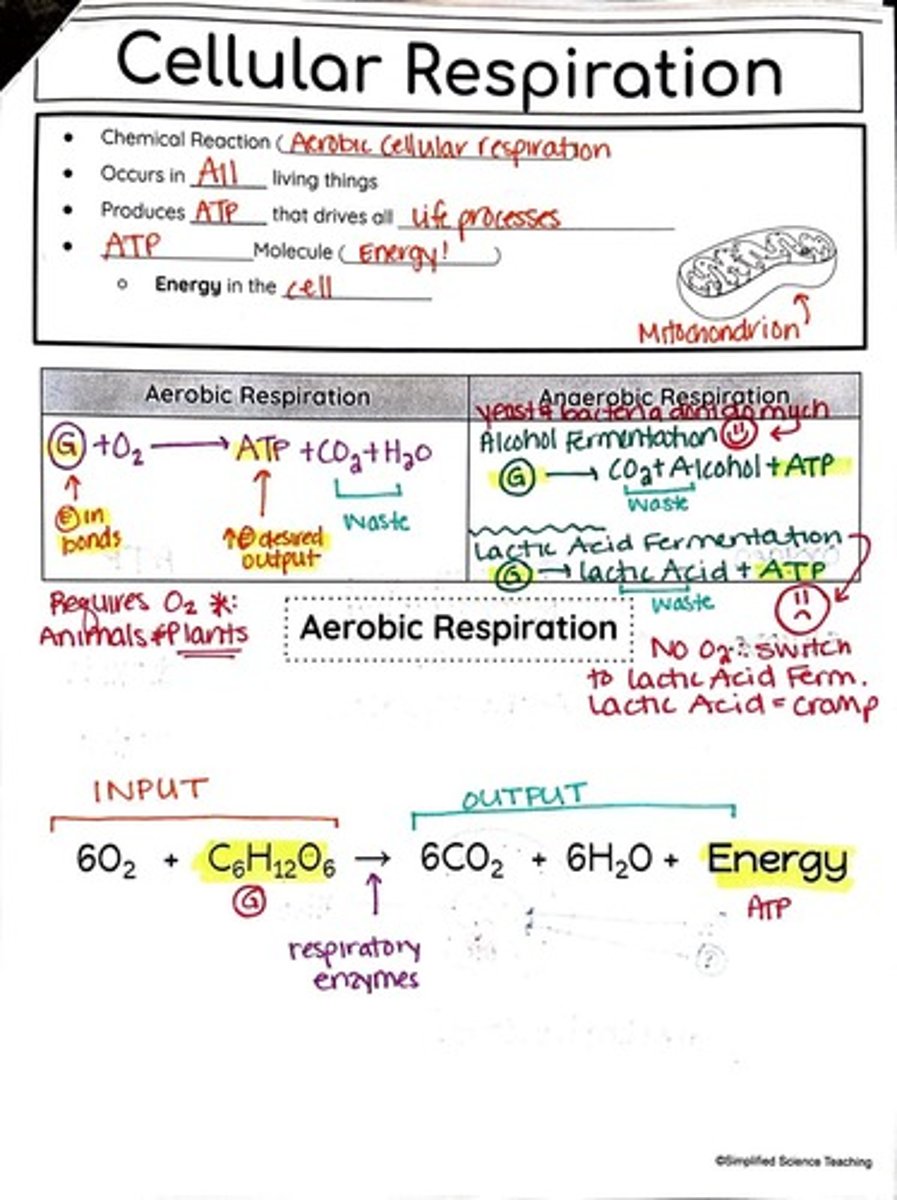 Cellular Respiration
• Chemical Reaction (Aerobic Cellular respiration
• Occurs in All living things
• Produces ATP that drives all life processes
• ATP Molecule (Energy!)
○ Energy in the cell
Mitochondrion
Aerobic Respiration
G + O₂ → ATP + CO₂ + H₂O
E in bonds
↑ E desired output
waste
Anaerobic Respiration
yeast & bacteria
Alcohol Fermentation
G → CO₂ + Alcohol + ATP
waste
Lactic Acid Fermentation
G → lactic Acid + ATP
waste
Requires O₂ *:
Animals & Plants
No O₂: switch
to lactic Acid Ferm.
Lactic Acid = cramp
Aerobic Respiration
INPUT
OUTPUT
6O₂ + C₆H₁₂O₆ → 6CO₂ + 6H₂O + Energy
G
ATP
respiratory
enzymes
©Simplified Science Teaching